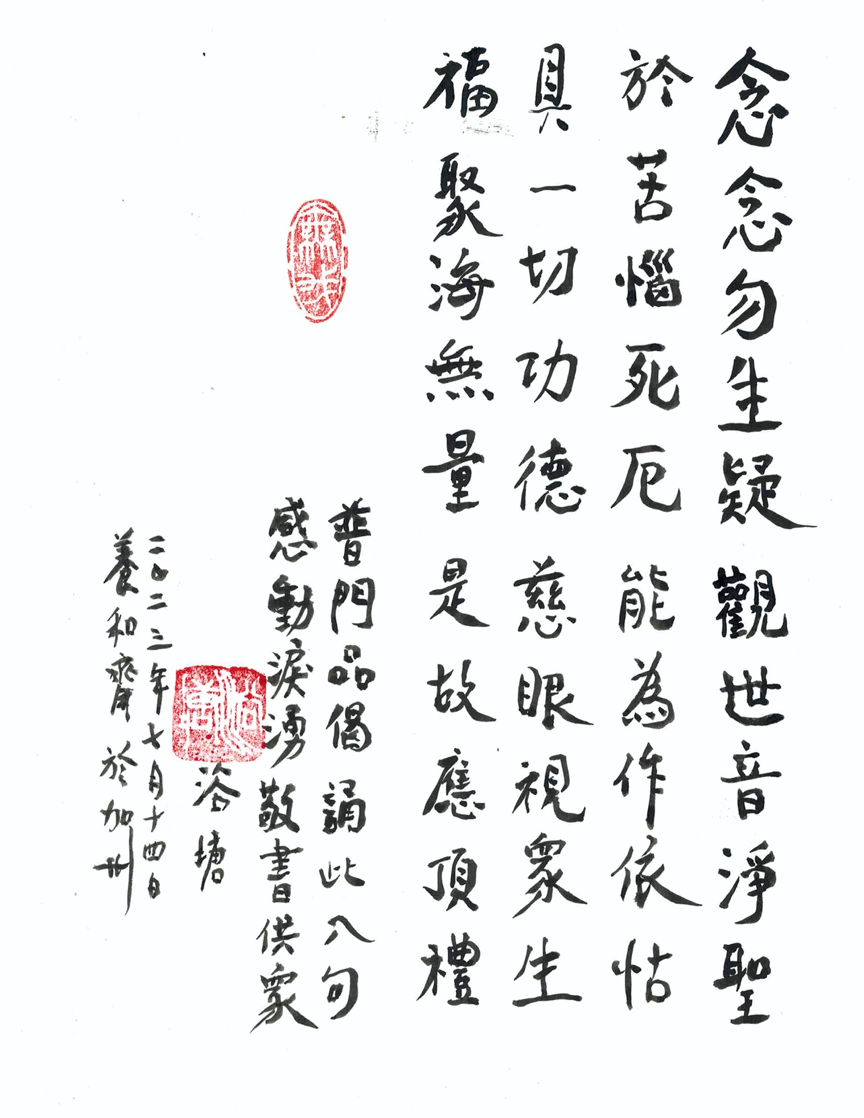 念念勿生疑觀世音淨聖
於苦惱死厄能為作依怙
具一切功德慈眼視眾生
福聚海無量是故應頂禮
普門品偈誦此八句
感動淚湧敬書供眾
洛塘
二〇二三年七月十四日
養和齋於加州